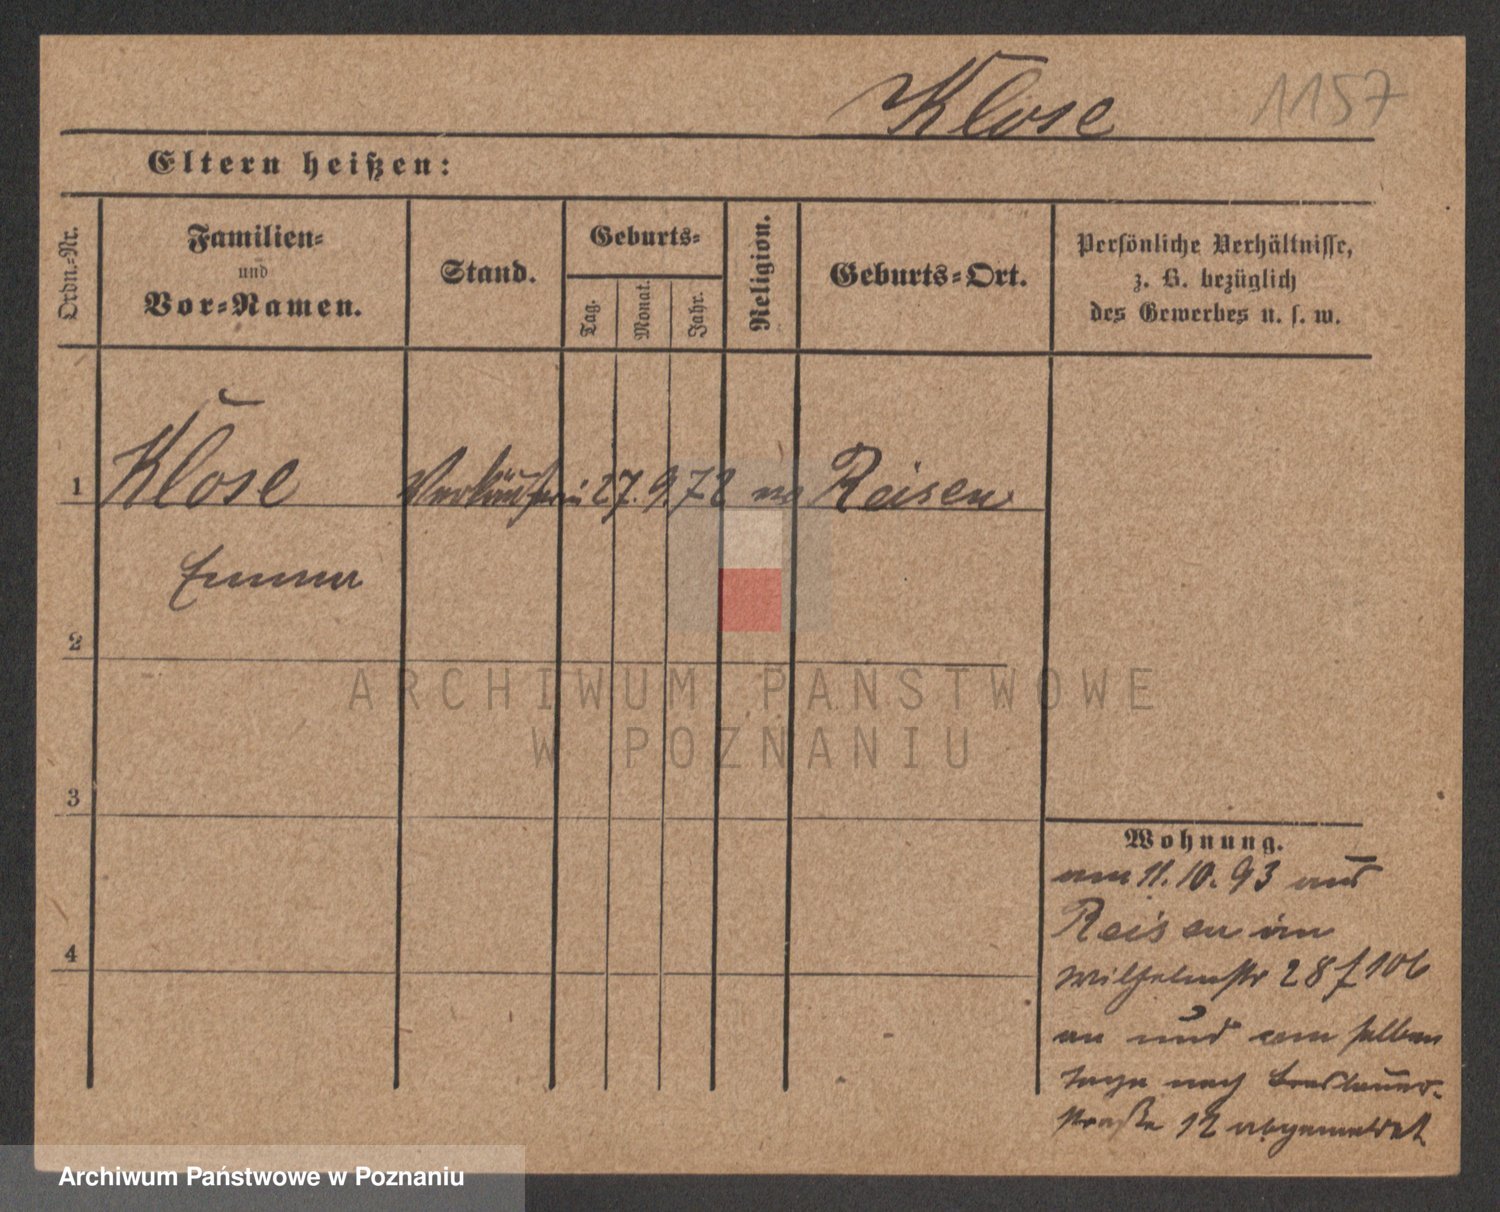 Klose 1157
Eltern heißen:
Ordn.-Nr.
Familien-
und
Vor-Namen.
Stand.
Geburts-
Tag.
Monat.
Jahr.
Religion.
Geburts-Ort.
Persönliche Verhältnisse,
z. B. bezüglich
des Gewerbes u. s. w.
1 Klose Verkäuferin 27. 9. 72 ev Reisen
Emma
2
3
4
Wohnung.
am 11. 10. 93 aus
Reisen in
Wilhelmstr 28 f 106
an und am selben
Tage nach Breslauer-
straße 12 abgemeldet
ARCHIWUM PAŃSTWOWE
W POZNANIU
Archiwum Państwowe w Poznaniu